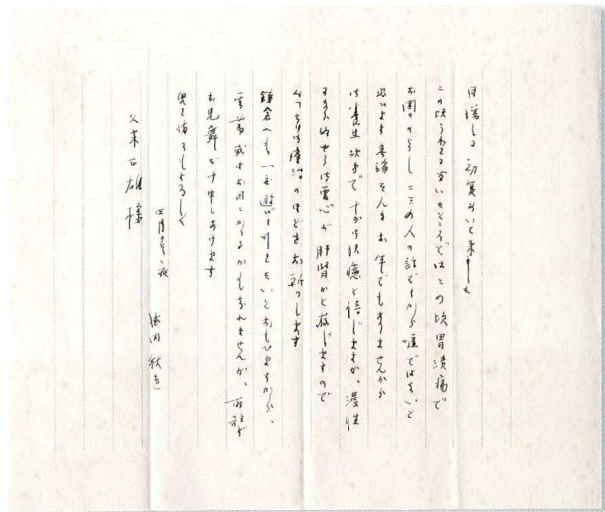 日増しに初夏めいて来ました
この頃うわさに聞いたところではこの頃胃潰瘍で
お困りのよし この人の話ですから嘘ではないと
思ひます 勿論そんなお年でもありませんから
御養生次第で すぐ御快癒と信じますが、慢性
になりやすく 御要心が肝腎かと存じますので
みっちり御療治のほどをお祈りします
鎌倉へも一度遊びに行きたいとおもひますから、
其節或はお目にかかるかもしれませんが、
お見舞だけ申しあげます
奥さまにもよろしく
四月十 夜
久米正雄様